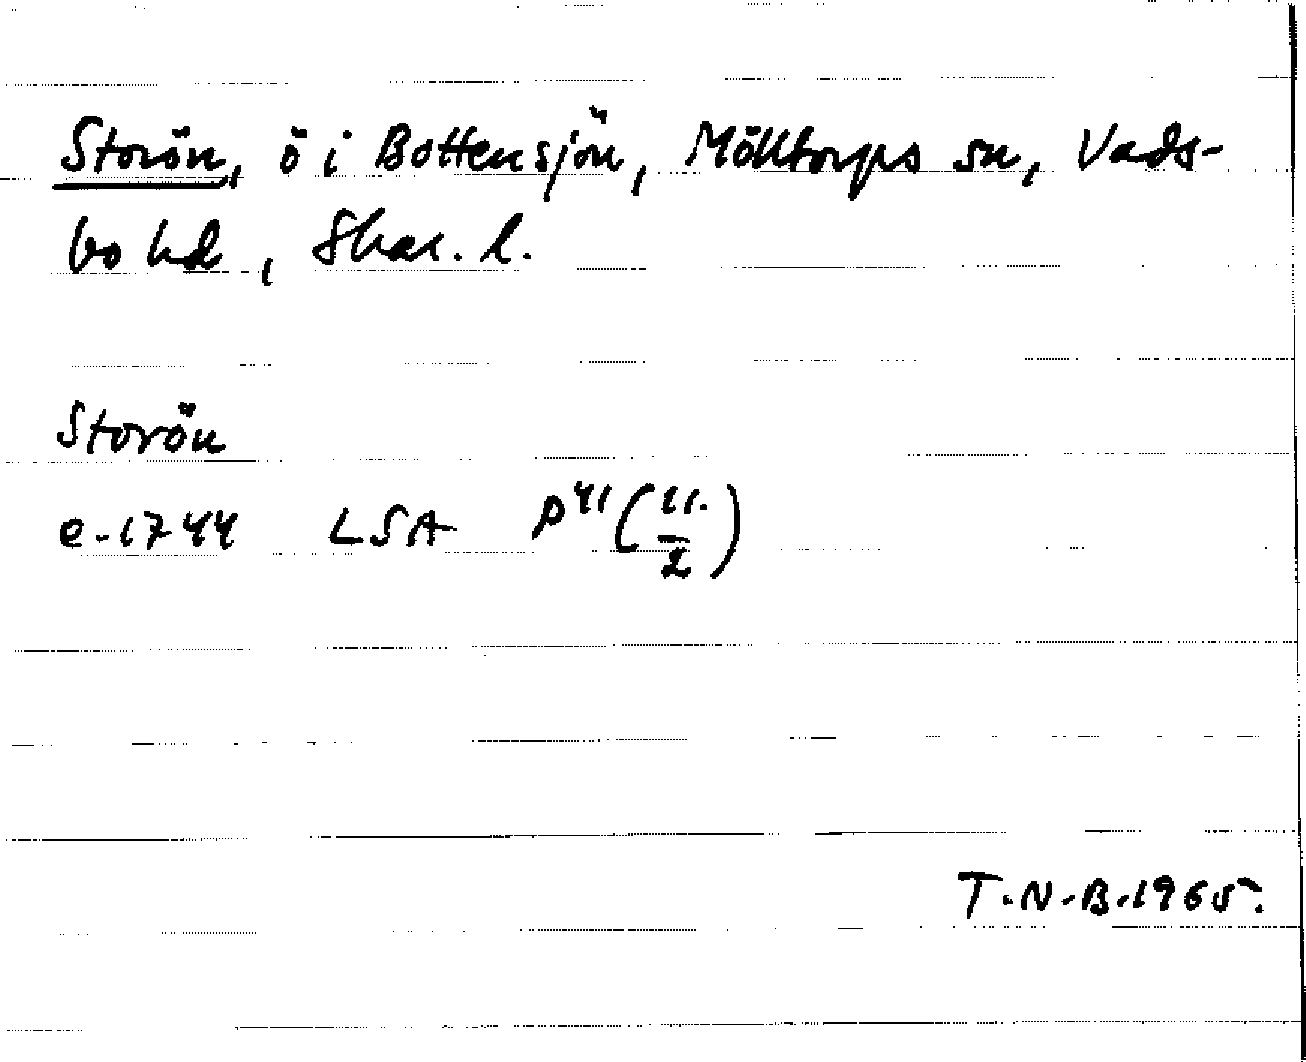 Storön, ö i Bottensjön, Mölltorps sn, Vads-
bo hd, Skar. l.
Storön
e. 1744 LSA P41 (11./2)
T.N.B. 1965.